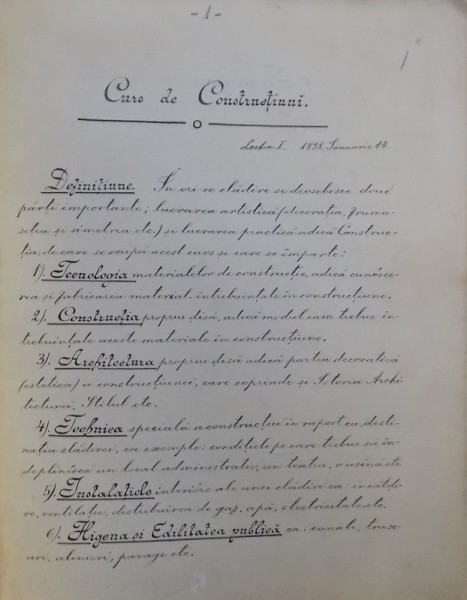 - 1 -
Curs de Construcțiuni.
Lecția I. 1898. Ianuarie 14.
Definitiune. În ori-ce clădire se deosebesce două
părți importante; lucrarea artistică (decorația, frumu-
sețea și simetria etc.) și lucrarea practică adică Construc-
ția; de care se ocupă acest curs și care se împarte:
1). Tecnologia materialelor de construcție, adică cunósce-
rea și fabricarea material. întrebuințate în construcțiune.
2). Construcția propriu ḑisă, adică modul cum trebue în-
trebuințate aceste materiale în construcțiune.
3). Architectura propriu ḑisă adică partea decorativă
(estetica) a construcțiunei, care coprinde și Istoria Archi-
tecturei, Stilul etc.
4). Technica specială a construcției în raport cu desti-
nația clădirei, ca exemplu: condițiele pe care trebue să în-
deplinéscă un local administrativ, un teatru, o usină etc
5). Instalațiele interióre ale unei clădiri ca: încăldi-
re, ventilație, distribuirea de gaz, apă, electricitate etc.
6). Higena și Edilitatea publică ca: canale, trase-
uri, alinieri, pavage etc.